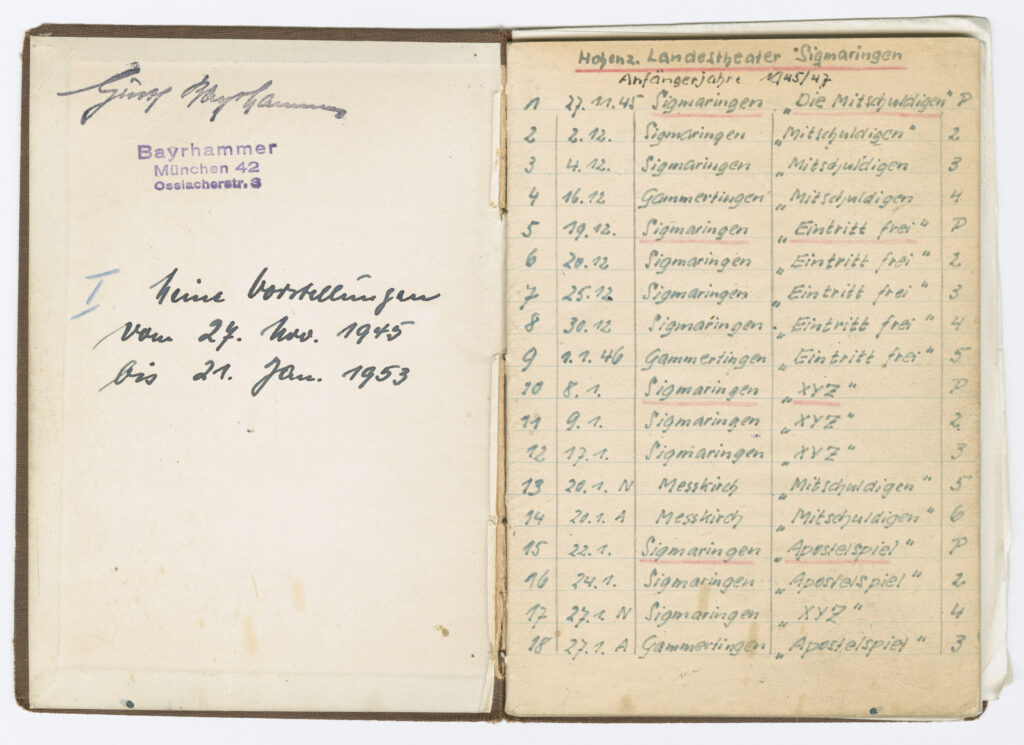 Gustl Bayrhammer
Bayrhammer
München 42
Ossiacherstr. 3
I meine Vorstellungen
vom 27. Nov. 1945
bis 21. Jan. 1953
Hohenz. Landestheater Sigmaringen
Anfängerjahre 1945/47
1 27.11.45 Sigmaringen „Die Mitschuldigen" P
2 2.12. Sigmaringen „Mitschuldigen" 2
3 4.12. Sigmaringen „Mitschuldigen 3
4 16.12 Gammertingen „Mitschuldigen 4
5 19.12. Sigmaringen „Eintritt frei" P
6 20.12 Sigmaringen „Eintritt frei" 2
7 25.12 Sigmaringen „Eintritt frei" 3
8 30.12 Sigmaringen „Eintritt frei" 4
9 1.1.46 Gammertingen „Eintritt frei" 5
10 8.1. Sigmaringen „XYZ" P
11 9.1. Sigmaringen „XYZ" 2
12 17.1. Sigmaringen „XYZ" 3
13 20.1. N Messkirch „Mitschuldigen" 5
14 20.1. A Messkirch „Mitschuldigen" 6
15 22.1. Sigmaringen „Apostelspiel" P
16 24.1. Sigmaringen „Apostelspiel" 2
17 27.1. N Sigmaringen „XYZ" 4
18 27.1. A Gammertingen „Apostelspiel" 3